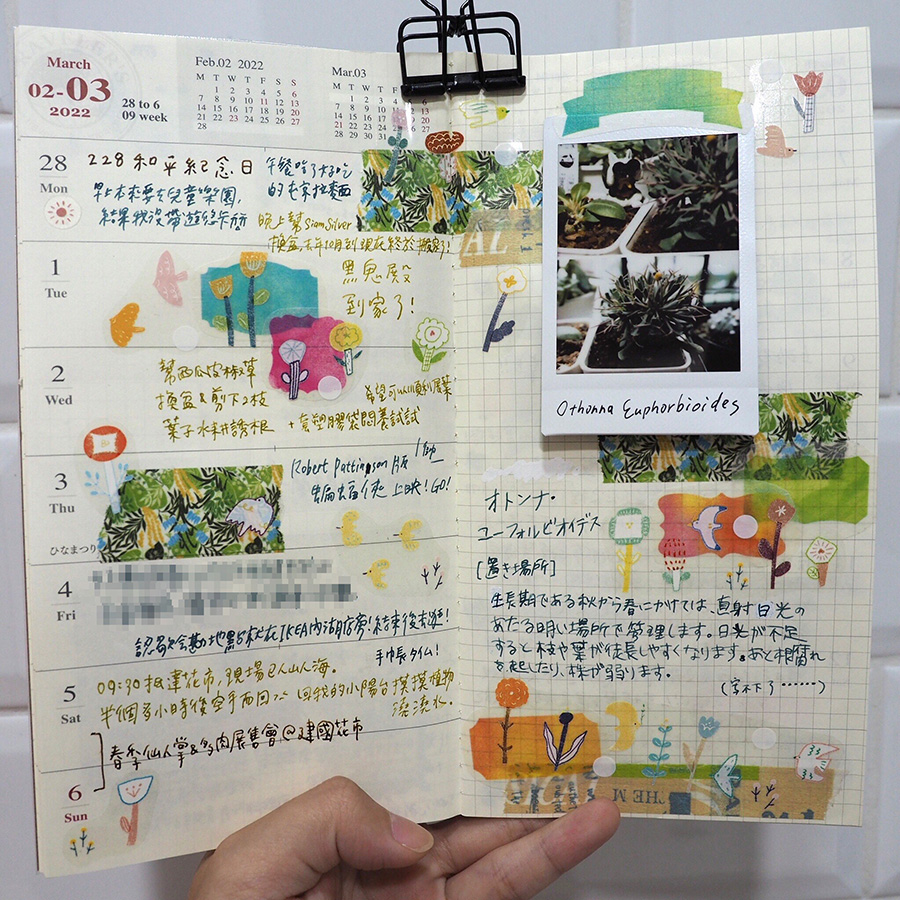 March
02-03
2022
28 to 6
09 week
Feb.02 2022
M T W T F S S
1 2 3 4 5 6
7 8 9 10 11 12 13
14 15 16 17 18 19 20
21 22 23 24 25 26 27
28
Mar.03
28
Mon
228和平紀念日
早上本來要去兒童樂園,
結果我沒帶遊
午餐吃了好吃
的屯京拉麵
晚上幫Siam Silver
換盆,去年10月到現在終於換了!
1
Tue
黑鬼殿
到家了!
2
Wed
幫西瓜皮椒草
換盆&剪下2枝
葉子水耕誘根
希望可以順利展葉
+套塑膠袋悶養試試
3
Thu
ひなまつり
Robert Pattinson版
蝙蝠俠 上映!GO!
4
Fri
地點就在IKEA內湖店旁!結束後去逛!
手帳タイム!
5
Sat
09:30抵達花市,現場已人山人海。
半個多小時後空手而回 回我的小陽台摸摸植物
澆澆水。
春季仙人掌&多肉展售會@建國花市
6
Sun
Othonna Euphorbioides
オトンナ・
ユーフォルビオイデス
[置き場所]
生長期である秋から春にかけては、直射日光の
あたる明い場所で管理します。日光が不足
すると枝や葉が徒長しやすくなります。あと根腐れ
を起したり、株が弱ります。
(寫不下了……)
HE M